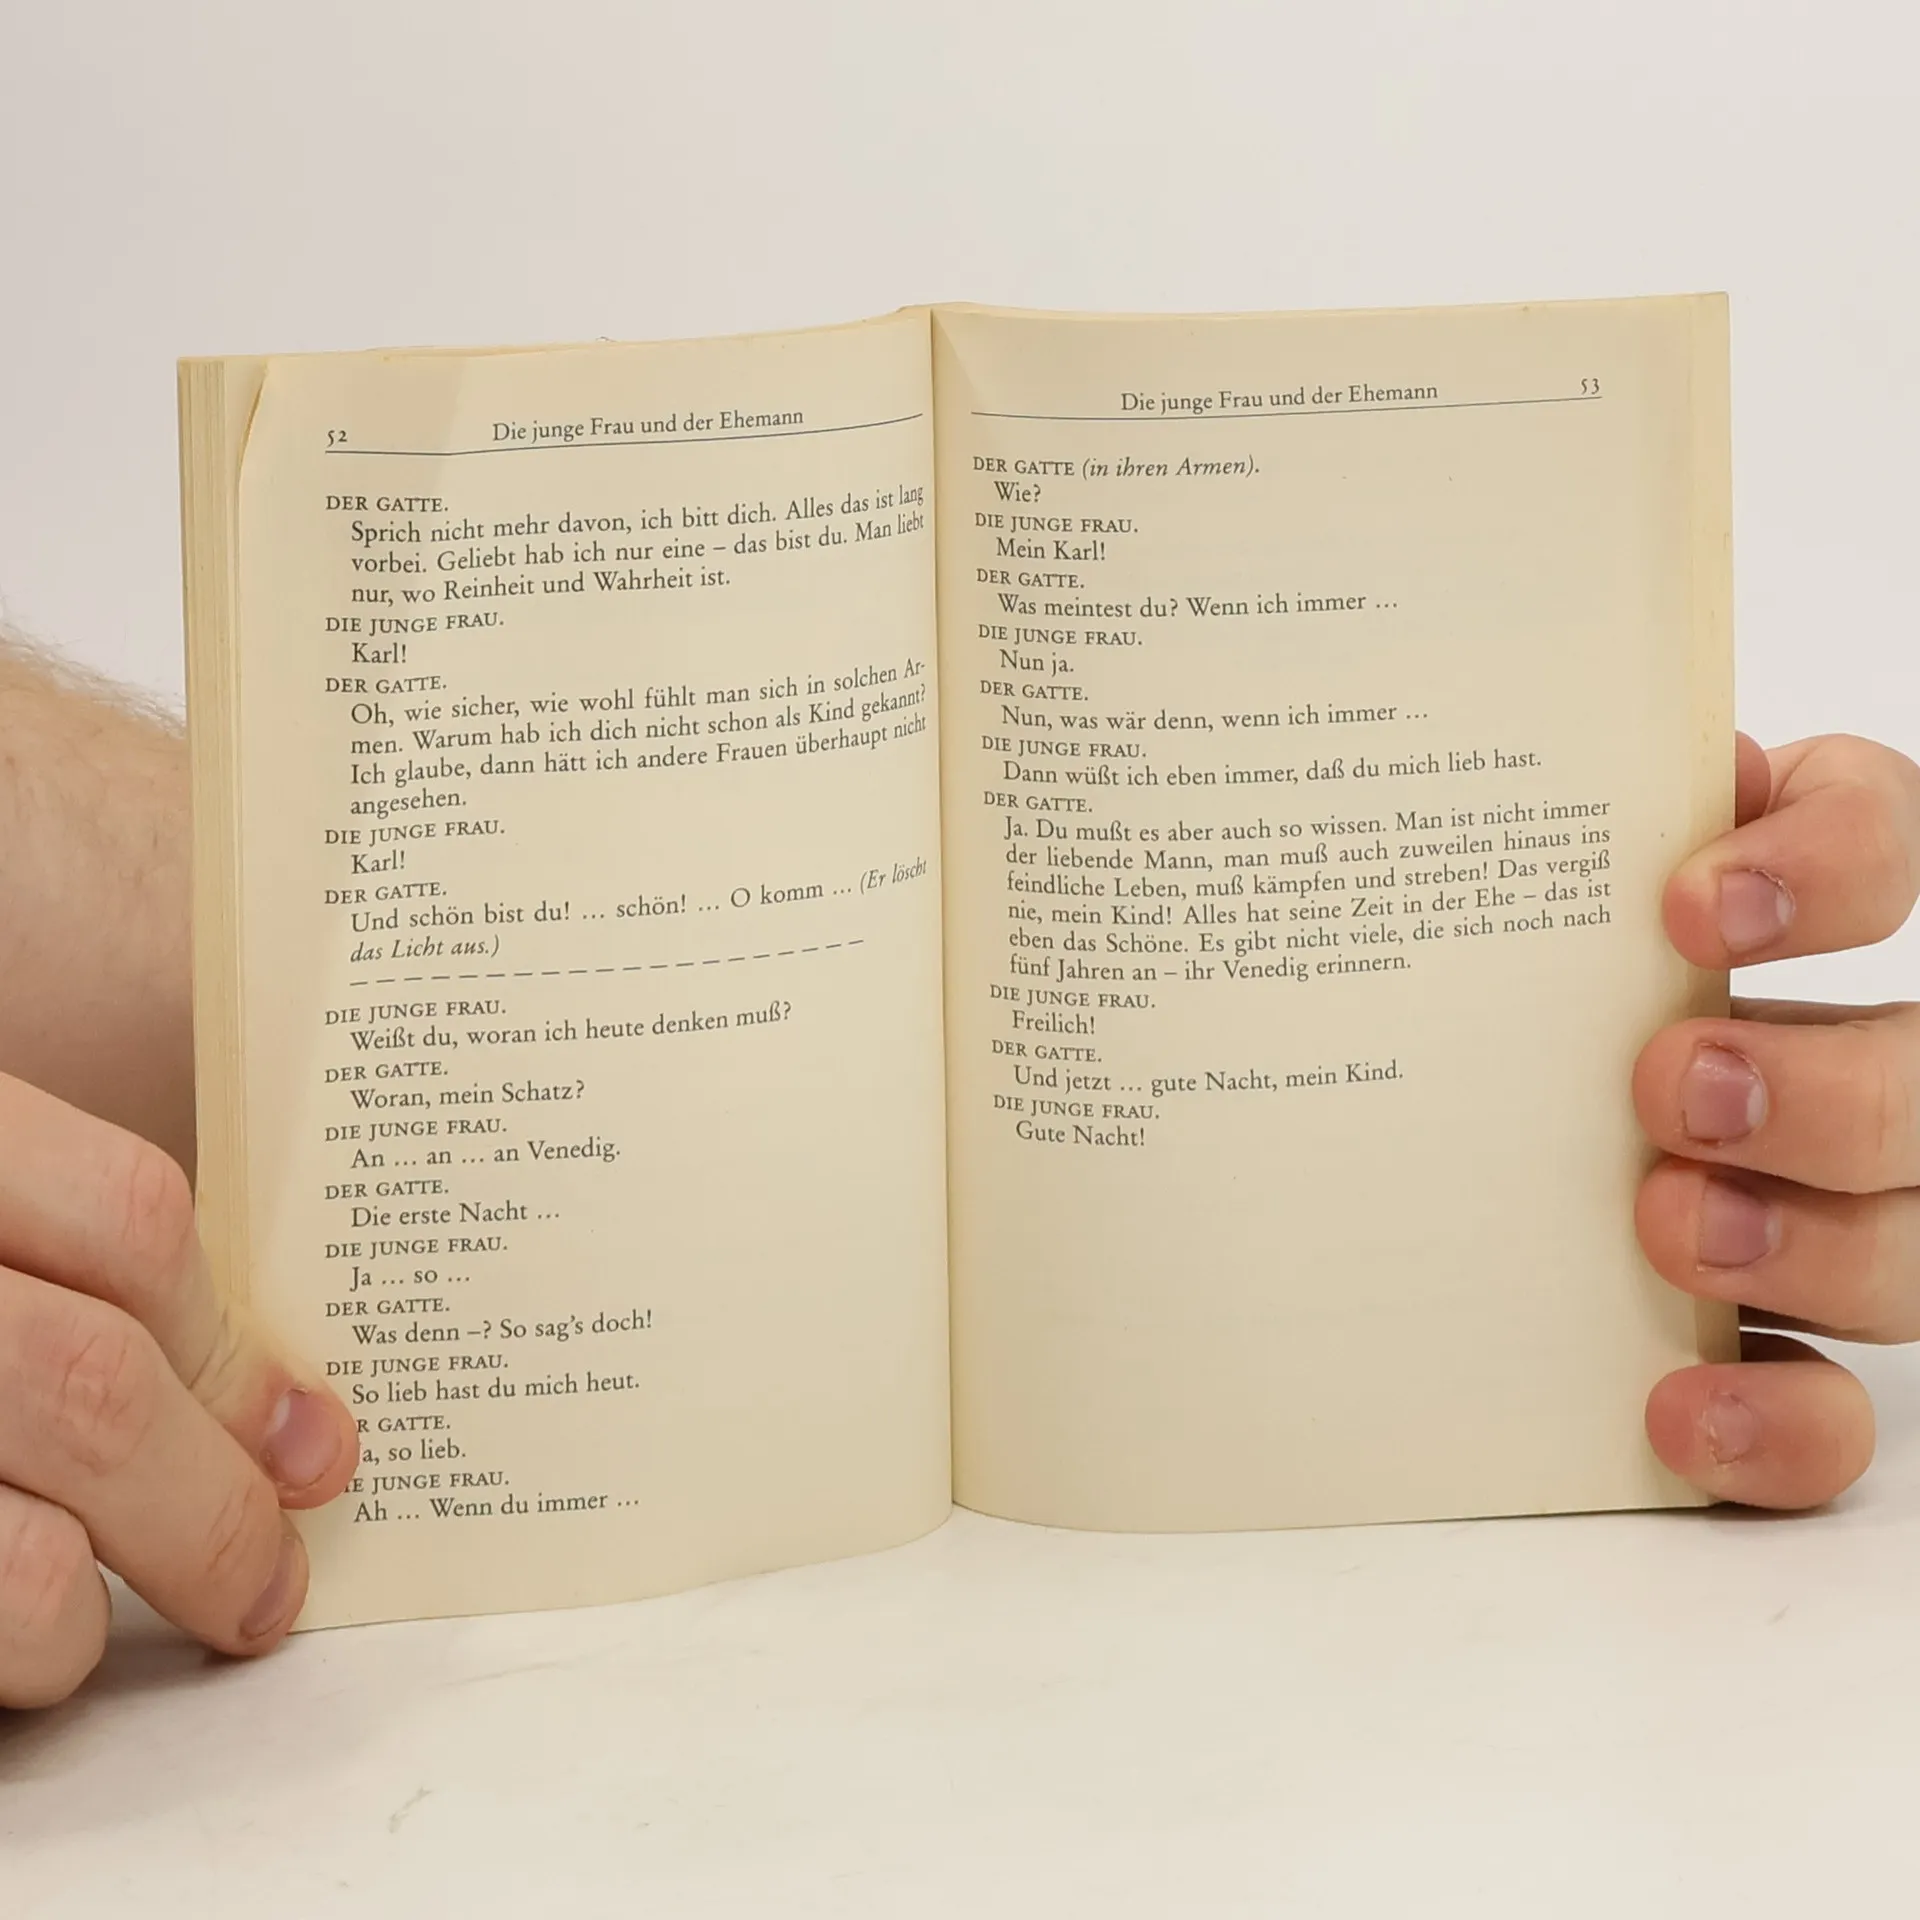 52 Die junge Frau und der Ehemann
DER GATTE.
Sprich nicht mehr davon, ich bitt dich. Alles das ist lang
vorbei. Geliebt hab ich nur eine – das bist du. Man liebt
nur, wo Reinheit und Wahrheit ist.
DIE JUNGE FRAU.
Karl!
DER GATTE.
Oh, wie sicher, wie wohl fühlt man sich in solchen Ar-
men. Warum hab ich dich nicht schon als Kind gekannt?
Ich glaube, dann hätt ich andere Frauen überhaupt nicht
angesehen.
DIE JUNGE FRAU.
Karl!
DER GATTE.
Und schön bist du! ... schön! ... O komm ... (Er löscht
das Licht aus.)
– – – – – – – – – – – – – – – – – – –
DIE JUNGE FRAU.
Weißt du, woran ich heute denken muß?
DER GATTE.
Woran, mein Schatz?
DIE JUNGE FRAU.
An ... an ... an Venedig.
DER GATTE.
Die erste Nacht ...
DIE JUNGE FRAU.
Ja ... so ...
DER GATTE.
Was denn –? So sag's doch!
DIE JUNGE FRAU.
So lieb hast du mich heut.
R GATTE.
a, so lieb.
IE JUNGE FRAU.
Ah ... Wenn du immer ...
Die junge Frau und der Ehemann 53
DER GATTE (in ihren Armen).
Wie?
DIE JUNGE FRAU.
Mein Karl!
DER GATTE.
Was meintest du? Wenn ich immer ...
DIE JUNGE FRAU.
Nun ja.
DER GATTE.
Nun, was wär denn, wenn ich immer ...
DIE JUNGE FRAU.
Dann wüßt ich eben immer, daß du mich lieb hast.
DER GATTE.
Ja. Du mußt es aber auch so wissen. Man ist nicht immer
der liebende Mann, man muß auch zuweilen hinaus ins
feindliche Leben, muß kämpfen und streben! Das vergiß
nie, mein Kind! Alles hat seine Zeit in der Ehe – das ist
eben das Schöne. Es gibt nicht viele, die sich noch nach
fünf Jahren an – ihr Venedig erinnern.
DIE JUNGE FRAU.
Freilich!
DER GATTE.
Und jetzt ... gute Nacht, mein Kind.
DIE JUNGE FRAU.
Gute Nacht!